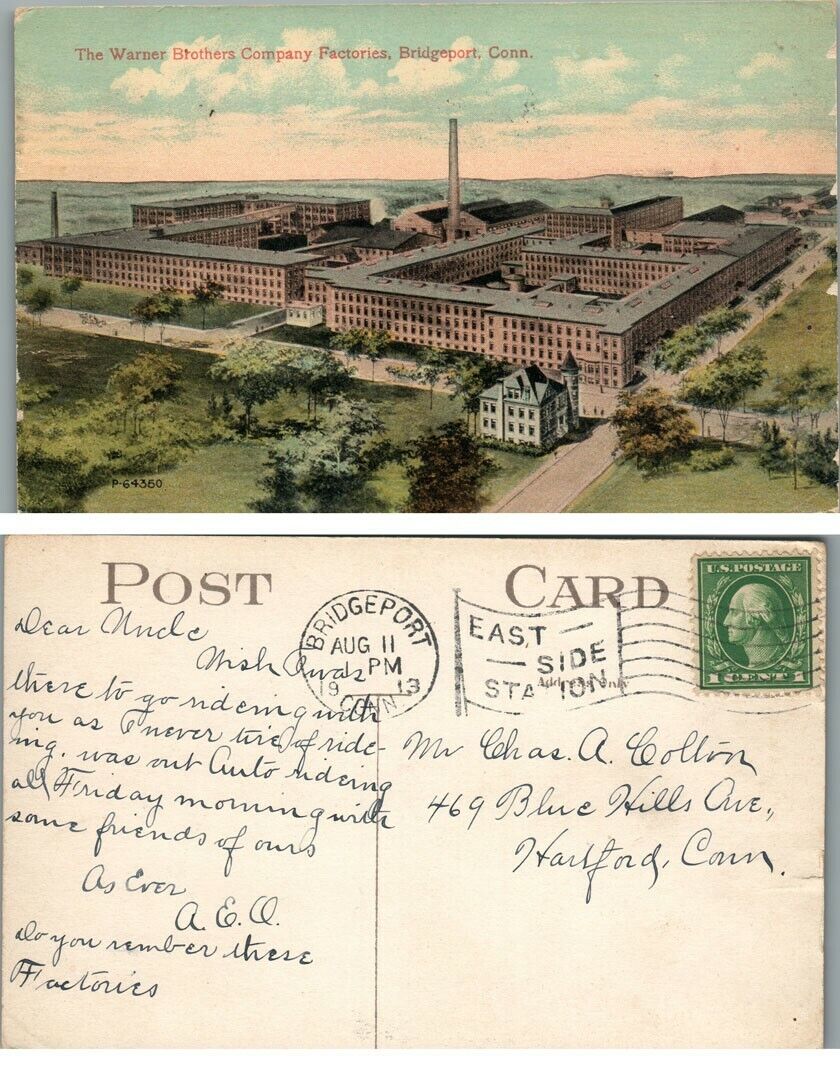 The Warner Brothers Company Factories, Bridgeport, Conn.
P-64350
POST CARD
BRIDGEPORT
AUG 11
1 PM
19 13
CONN
EAST
SIDE
STATION
U.S. POSTAGE
1 CENT 1
Dear Uncle
Wish I was
there to go rideing with
you as I never tire of ride-
ing. was out Auto rideing
all Friday morning with
some friends of ours
As Ever
A. E. O.
Do you rember these
Factories
Address Only
Mr Chas. A. Colton
469 Blue Hills Ave.,
Hartford, Conn.